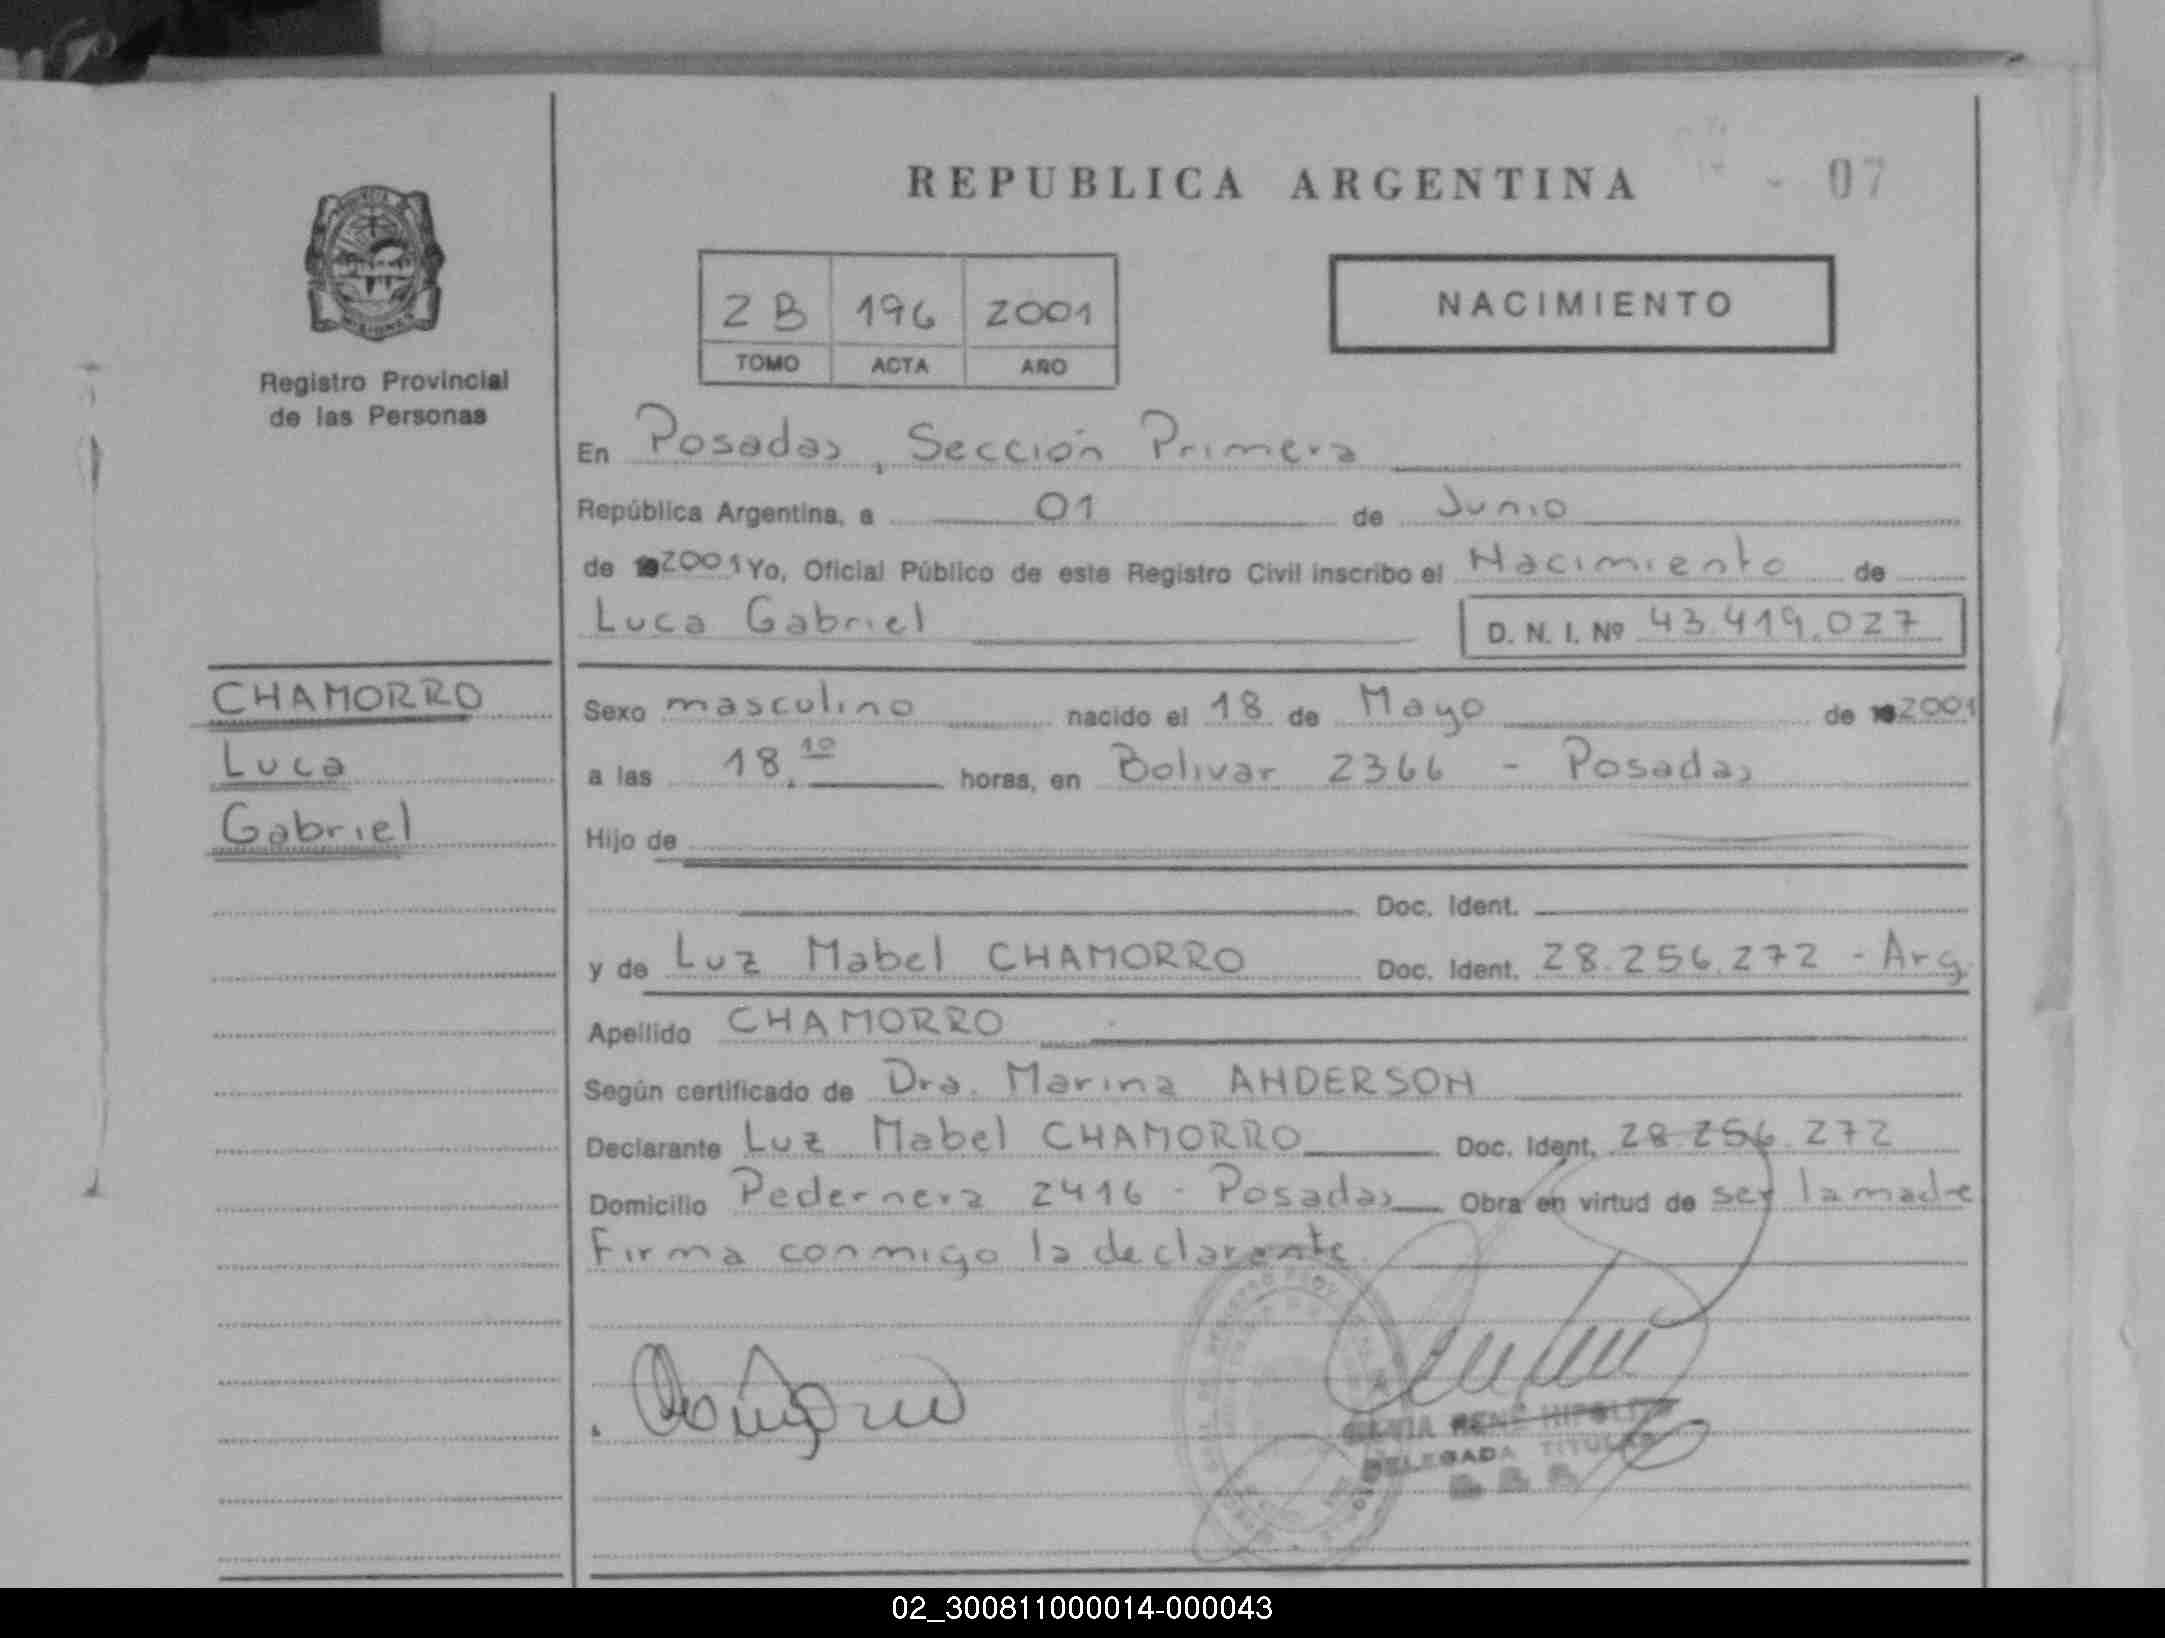 REPUBLICA ARGENTINA - 07
2 B 196 2001
TOMO ACTA AÑO
NACIMIENTO
Registro Provincial
de las Personas
En Posadas, Sección Primera
República Argentina, a 01 de Junio
de 2001 Yo, Oficial Público de este Registro Civil inscribo el Nacimiento de
Luca Gabriel D. N. I. Nº 43.419.027
CHAMORRO
Luca
Gabriel
Sexo masculino nacido el 18 de Mayo de 2001
a las 18.10 horas, en Bolivar 2366 - Posadas
Hijo de
Doc. Ident.
y de Luz Mabel CHAMORRO Doc. Ident. 28.256.272 - Arg.
Apellido CHAMORRO
Según certificado de Dra. Marina ANDERSON
Declarante Luz Mabel CHAMORRO Doc. Ident. 28.256.272
Domicilio Pedernera 2416 - Posadas Obra en virtud de ser la madre
Firma conmigo la declarante.
RENÉ HIPOLITO
DELEGADA TITULAR
02_300811000014-000043